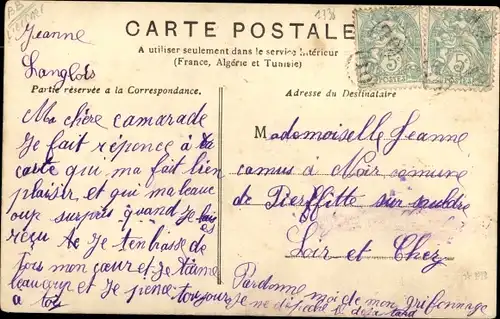 Jeanne
Langlois
138
CARTE POSTALE
A utiliser seulement dans le service intérieur
(France, Algérie et Tunisie)
Partie réservée a la Correspondance.
Adresse du Destinataire
Ma chère camarade
Je fait réponce à ta
carte qui ma fait bien
plaisir et qui ma beauc
oup surpris quand je lais
reçu je tenbrasse de
tous mon cœur et je taime
beaucoup et je pence toujours
a toi
Mademoiselle Jeanne
camus à Noir comune
de Pierffitte sur suldre
Loir et Cher
Pardonne moi de mon grifonnage
je me dépêche il est tard